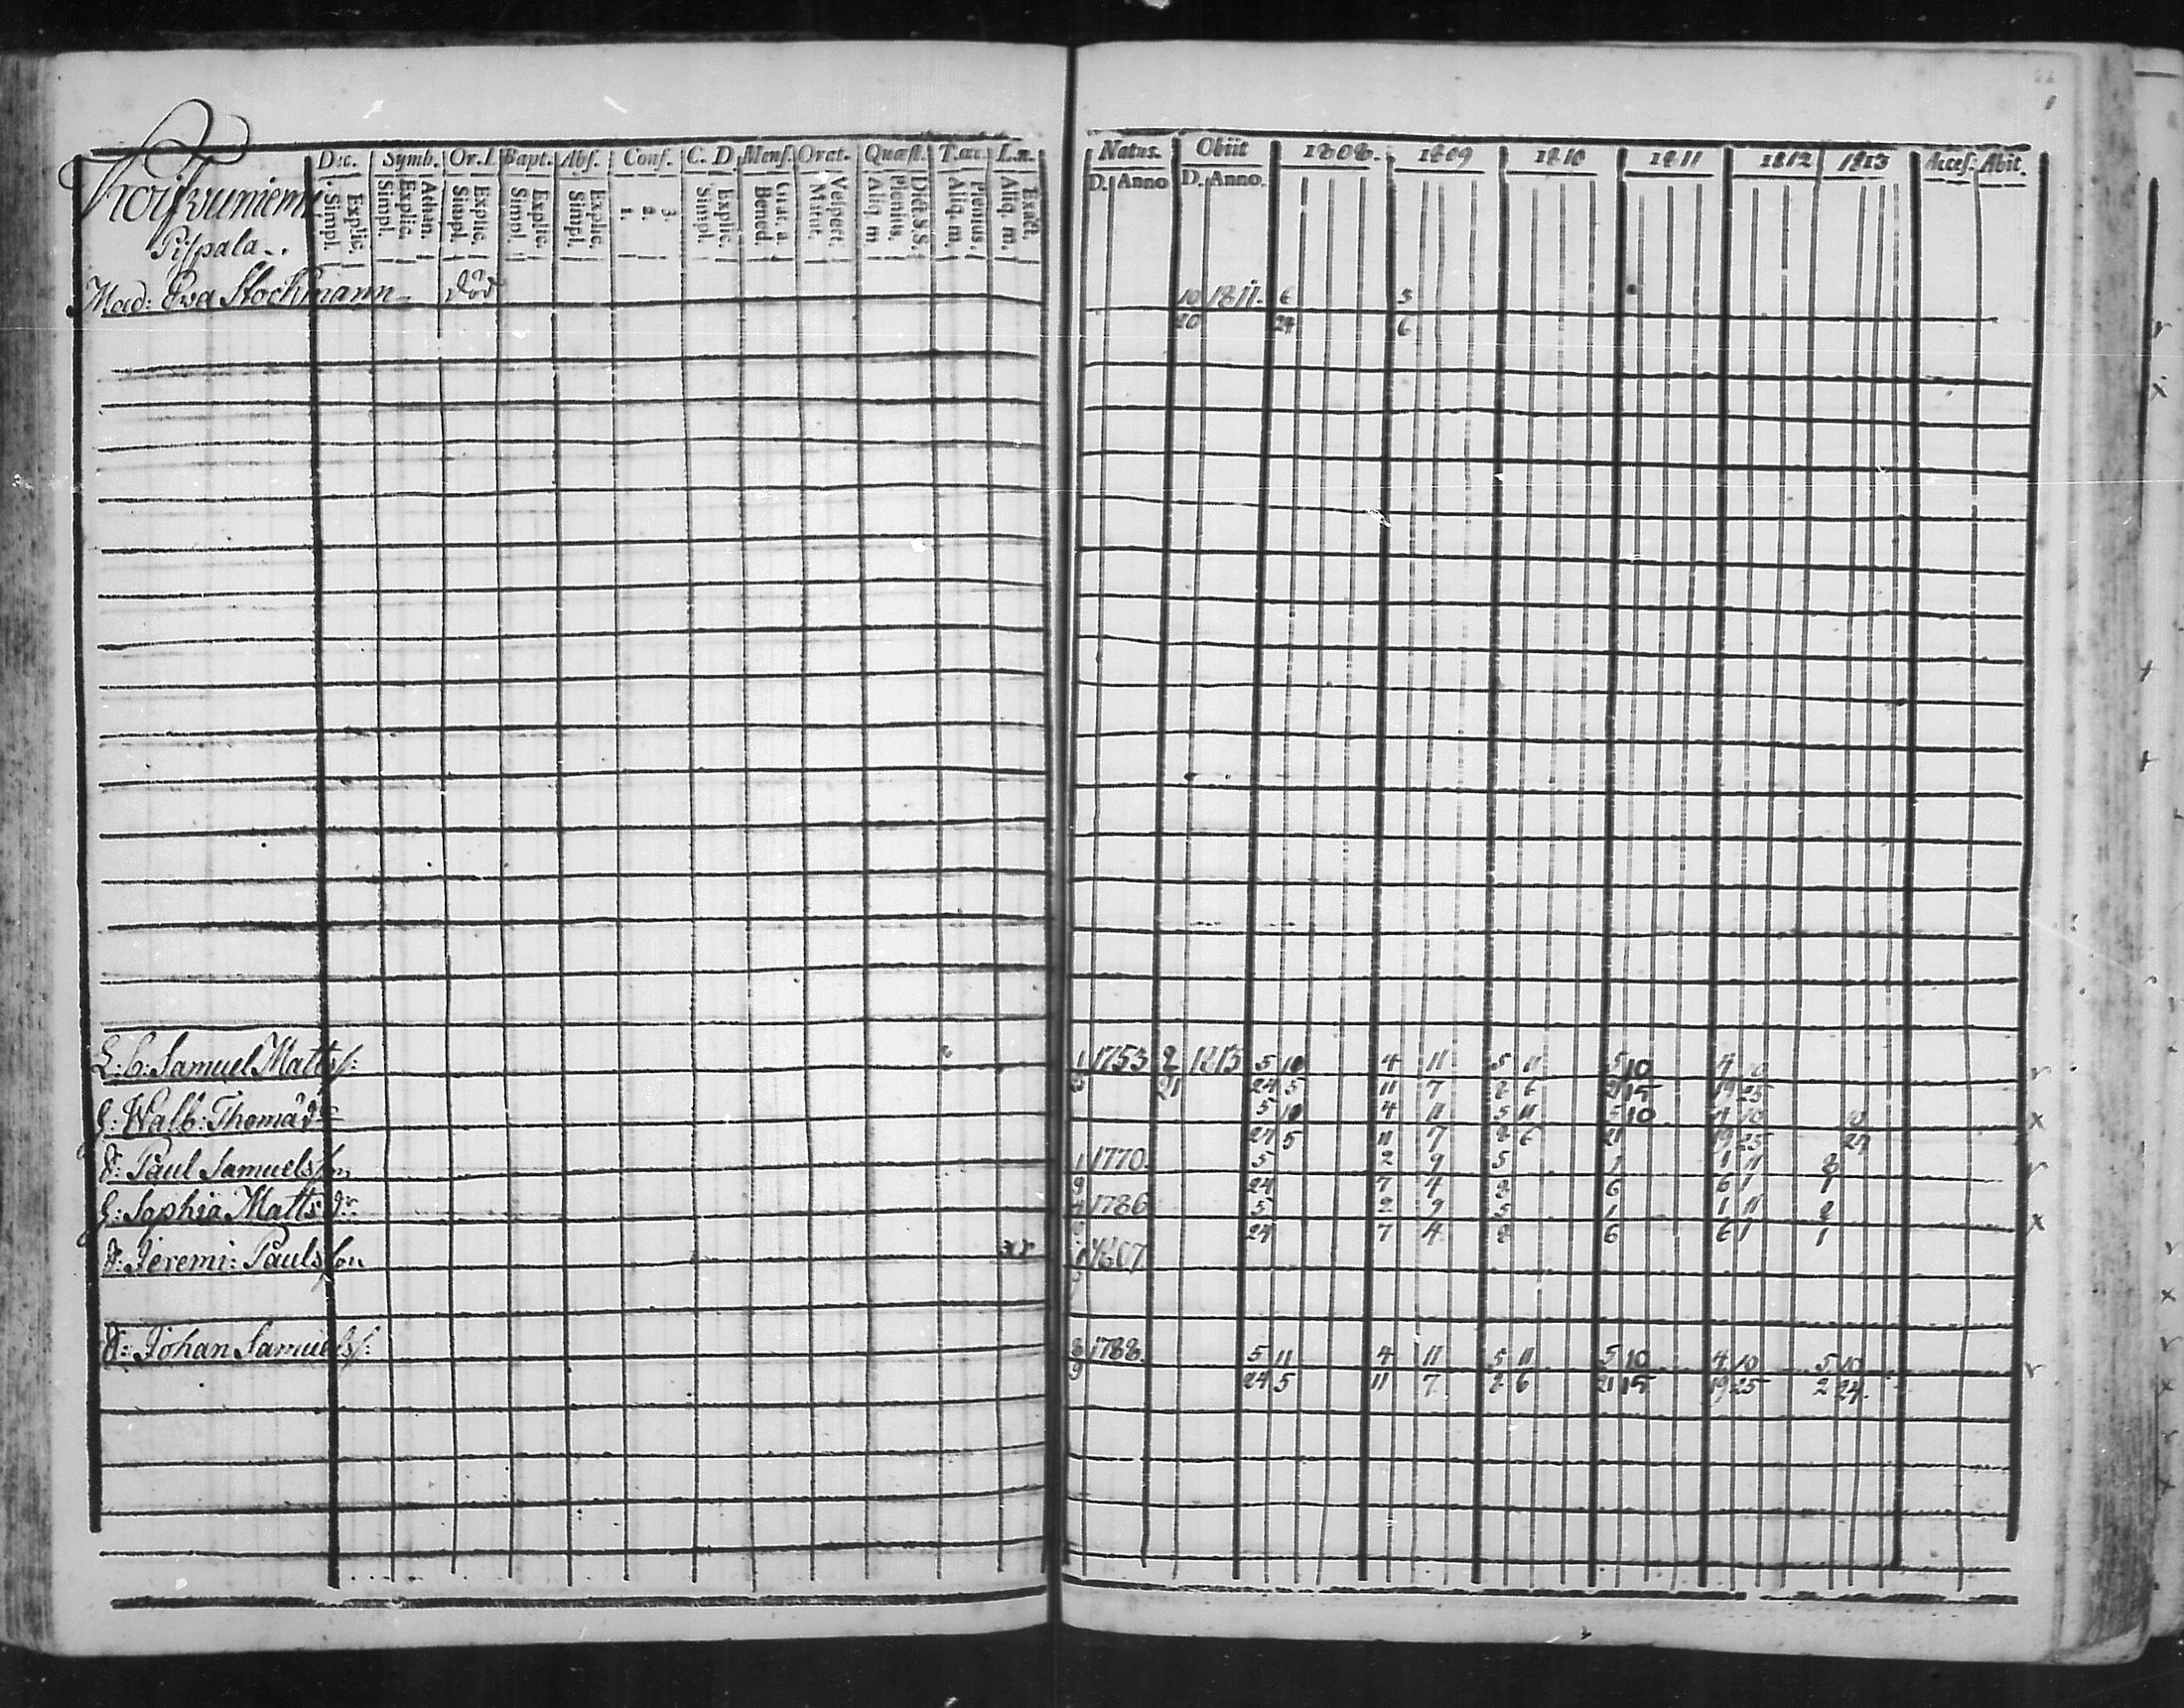 Pispala..
D:c. Symb. Or.D Bapt. Abs. Conf. C. D. Mens. Orat. Quæst. T.œc. L.n.
Simpl. Explic. Simpl. Explic. Athan. Simpl. Explic. Simpl. Explic. Simpl. Explic. 1. 2. 3. Simpl. Explic. Bened. Grat. a. Matut. Vespert. Aliq. m. Plenius. Dict. S.S. Aliq. m. Plenius. Aliq. m. Exact.
Natus. Obiit 1808. 1809 1810 1811 1812 1813 Acces. Abit.
D. Anno D. Anno.
Mad: Eva Stockmann död 10 1811. 6 3
20 24 6
Samuel Matts: 1 1753 2 1813 5 10 4 11 5 11 5 10 4 10
21 24 5 11 7 2 6 21 15 19 25
G: Walb: Thomæ dr 5 10 4 11 5 11 5 10 4 10 10
24 5 11 7 2 6 21 19 25 24
d: Paul Samuelsson 1 1770. 5 2 9 5 1 1 11 2
9 24 7 4 2 6 6 1 1
G: Sophia Matts dr 4 1786 5 2 9 5 1 1 11 2
24 7 4 2 6 6 1 1
d: Jeremi: Paulsson 1807
d: Johan Samuels: 8 1788. 5 11 4 11 5 11 5 10 4 10 5 10
9 24 5 11 7 2 6 21 15 19 25 2 24.